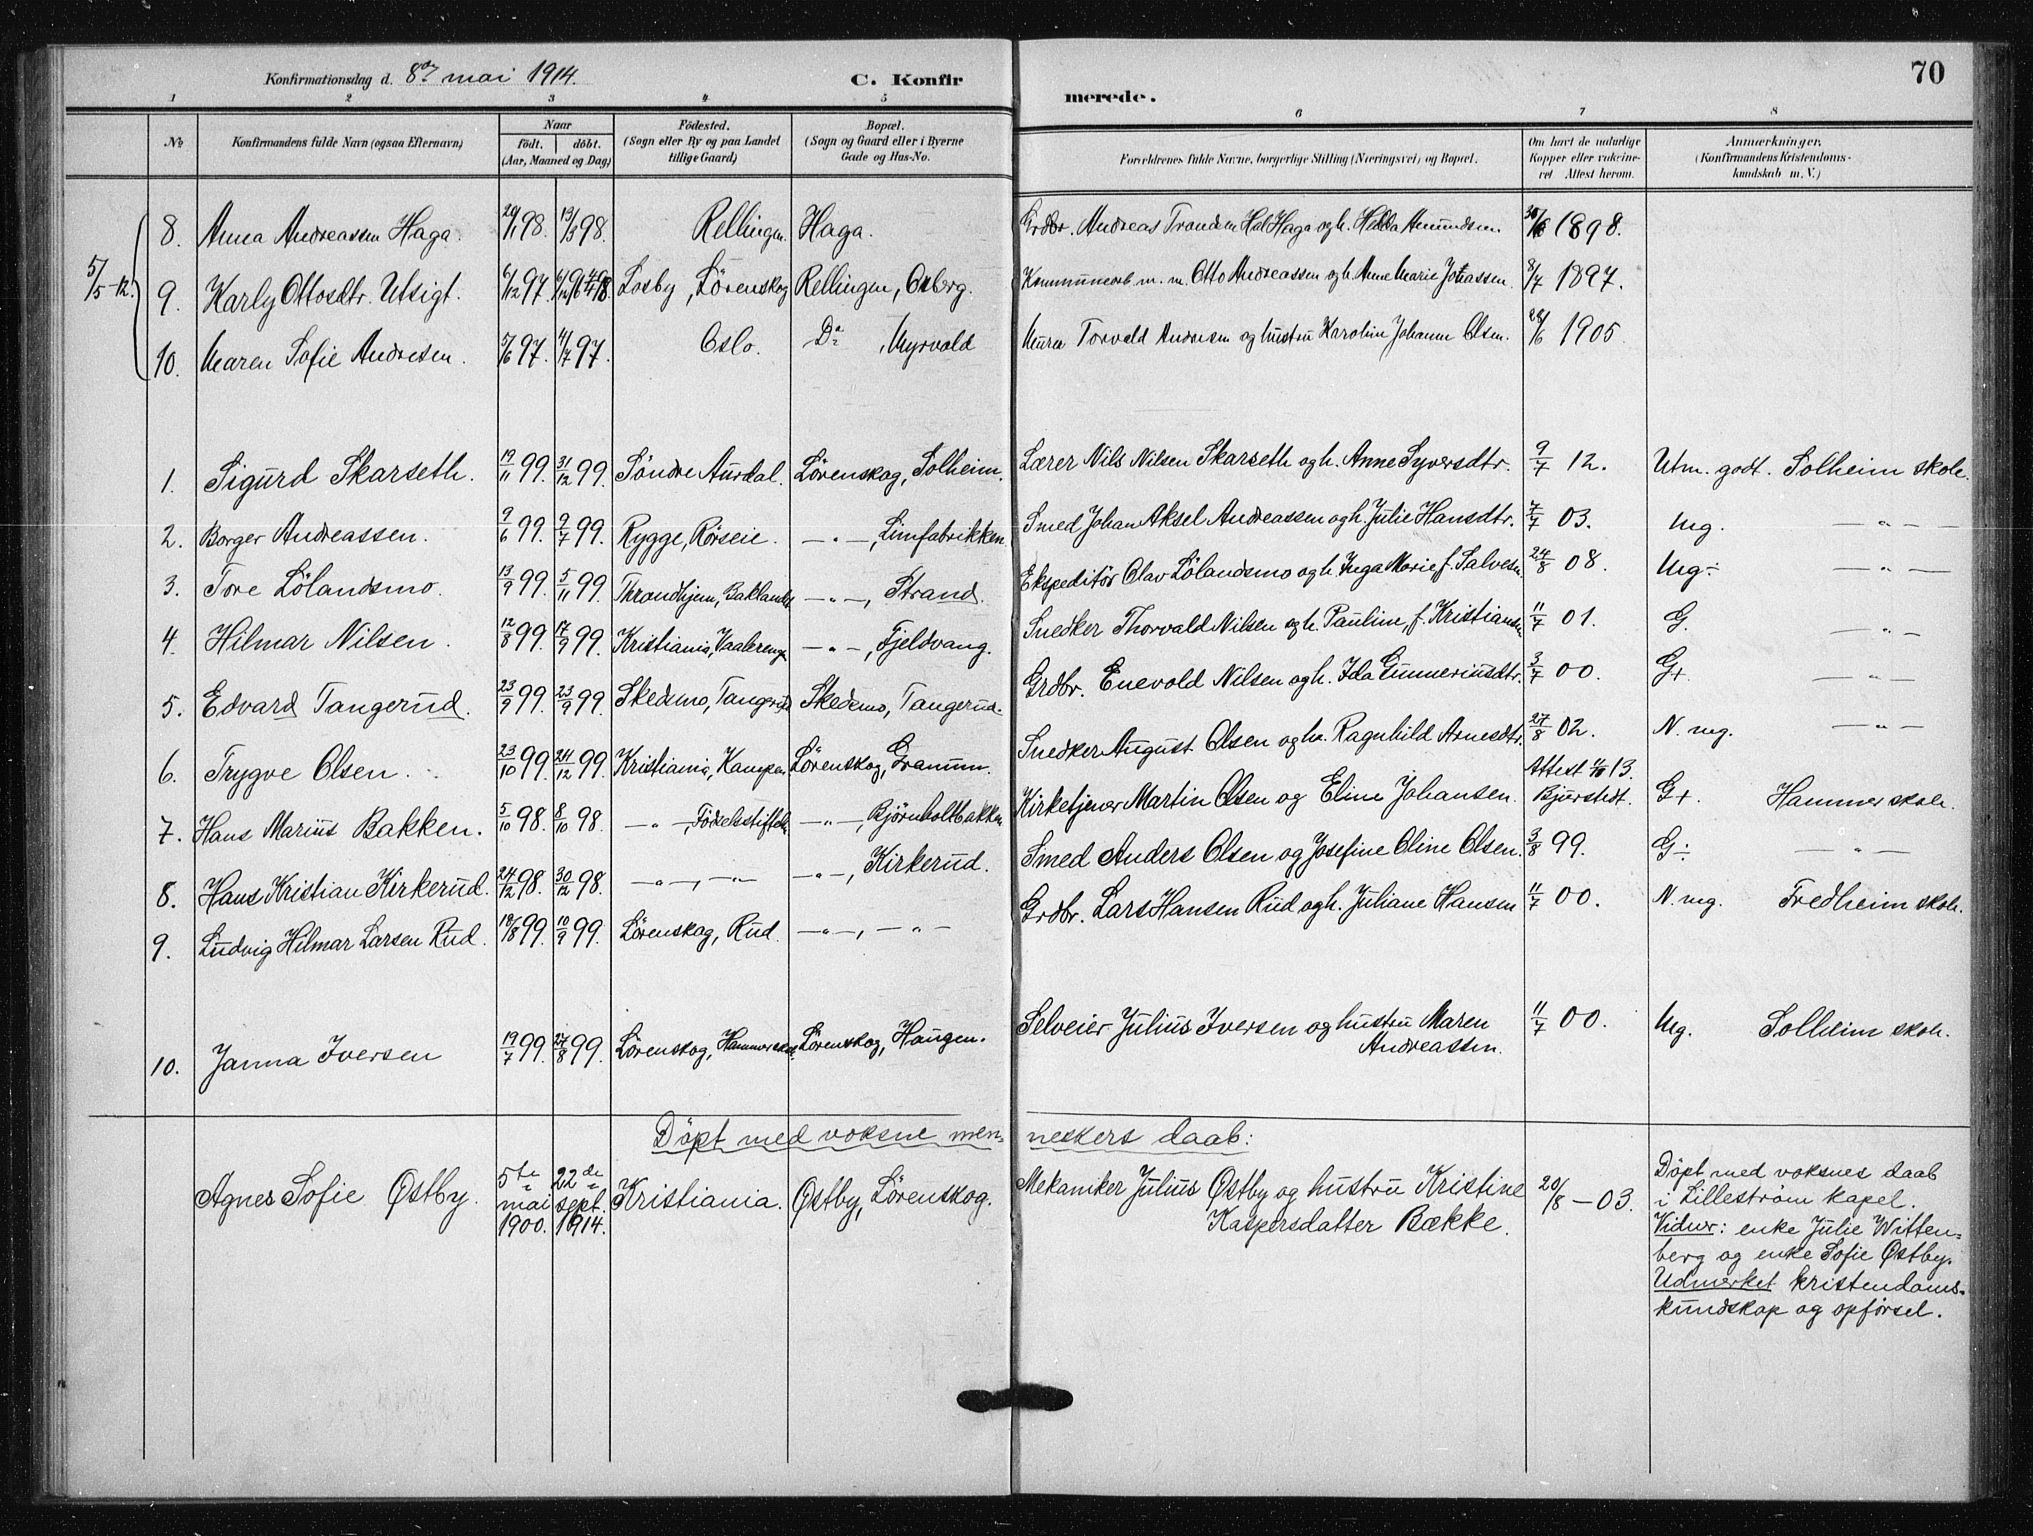 Konfirmationsdag d. 8de mai 1914. C. Konfir merede. 70
1 2 3 4 5 6 7 8
No Konfirmandens fulde Navn (ogsaa Efternavn) Naar født. døbt. (Aar, Maaned og Dag) Fødested. (Sogn eller By og paa Landet tillige Gaard) Bopæl. (Sogn og Gaard eller i Byerne Gade og Hus-No. Forældrenes fulde Navne, borgerlige Stilling (Næringsvei) og Bopæl. Om havt de naturlige Kopper eller vakcineret Attest herom. Anmærkninger. (Konfirmandens Kristendomskundskab m. V.)
5/5-12.
8. Anna Andreassen Haga. 20/1 98. 13/3 98. Rellingen. Haga. Grdbr. Andreas Haga og h. Amundsen. 1898.
9. Karly Ottosdtr. Utsigt. 6/12 97. Losby, Lörenskog Rellingen, Osberg. Otto Andreassen og h. Anne Marie 8/7 1897.
10. Maren Sofie Andresen. 5/6 97. 11/7 97. Oslo. Do , Myrvold Murer Torvald Andresen og hustru Karoline Johanne Olsen. 1905
1. Sigurd Skarseth. 19/11 99. 31/12 99. Söndre Aurdal. Lörenskog, Solheim. Lærer Nils Nilsen Skarseth og h. Anne Syversdtr. 9/7 12. Utm. godt. Solheim skole.
2. Borger Andreassen. 9/6 99. 9/7 99. Rygge, Rörseie. — " —, Limfabrikken Smed Johan Aksel Andreassen og h. Julie Hansdtr. 7/7 03. Mg. — " —
3. Tore Lölandsmo. 13/9 99. 5/11 99. Throndhjem, Baklandet — " —, Strand. Ekspeditör Olav Lölandsmo og h. Inga Marie f. Salvesen 24/8 08. Mg÷ — " —
4. Hilmar Nilsen. 12/8 99. 17/9 99. Kristiania, Vaalerengen — " —, Fjeldvang. Snedker Thorvald Nilsen og h. Pauline f. Kristiansen 11/7 01. G. — " —
5. Edvard Tangerud. 23/9 99. 23/9 99. Skedsmo, Tangerud Skedsmo, Tangerud. Grdbr. Enevold Nilsen og h. Ida Gunneriusdtr. 3/7 00. G+. — " —
6. Trygve Olsen. 23/10 99. 24/12 99. Kristiania, Kampen Lörenskog, Granum. Snedker August Olsen og h. Ragnhild Arnesdtr. 27/8 02. N. mg. — " —
7. Hans Marius Bakken. 5/10 98. 8/10 98. — " —, Födselsstiftelsen — " —, Bjørnholtbakken Kirketjener Martin Olsen og Eline Johansen. Attest 13. Bjurstedt. G+. Hammer skole.
8. Hans Kristian Kirkerud. 24/12 98. 30/12 98. — " —, — " — — " —, Kirkerud. Smed Anders Olsen og Josefine Oline Olsen. 3/8 99. G÷ — " —
9. Ludvig Hilmar Larsen Rud. 18/8 99. 10/9 99. Lörenskog, Rud. — " —, — " — Grdbr. Lars Hansen Rud og h. Juliane Hansen 11/7 00. N. mg. Fredheim skole.
10. Janna Iversen 19/7 99. 27/8 99. Lörenskog, Hammer skole Lörenskog, Haugen. Selveier Julius Iversen og hustru Maren Andreassen. 11/7 00. Mg. Solheim skole.
Döpt med voksne menneskers daab:
Agnes Sofie Østby. 5te mai 1900. 22de sept. 1914. Kristiania. Østby, Lörenskog. Mekaniker Julius Østby og hustru Kristine Kaspersdatter Bække. 20/8 — 03. Döpt med voksnes daab
i Lillestrøm kapel.
Vidner: enke Julie Witten-
berg og enke Sofie Østby.
Udmerket kristendoms-
kundskap og opførsel.